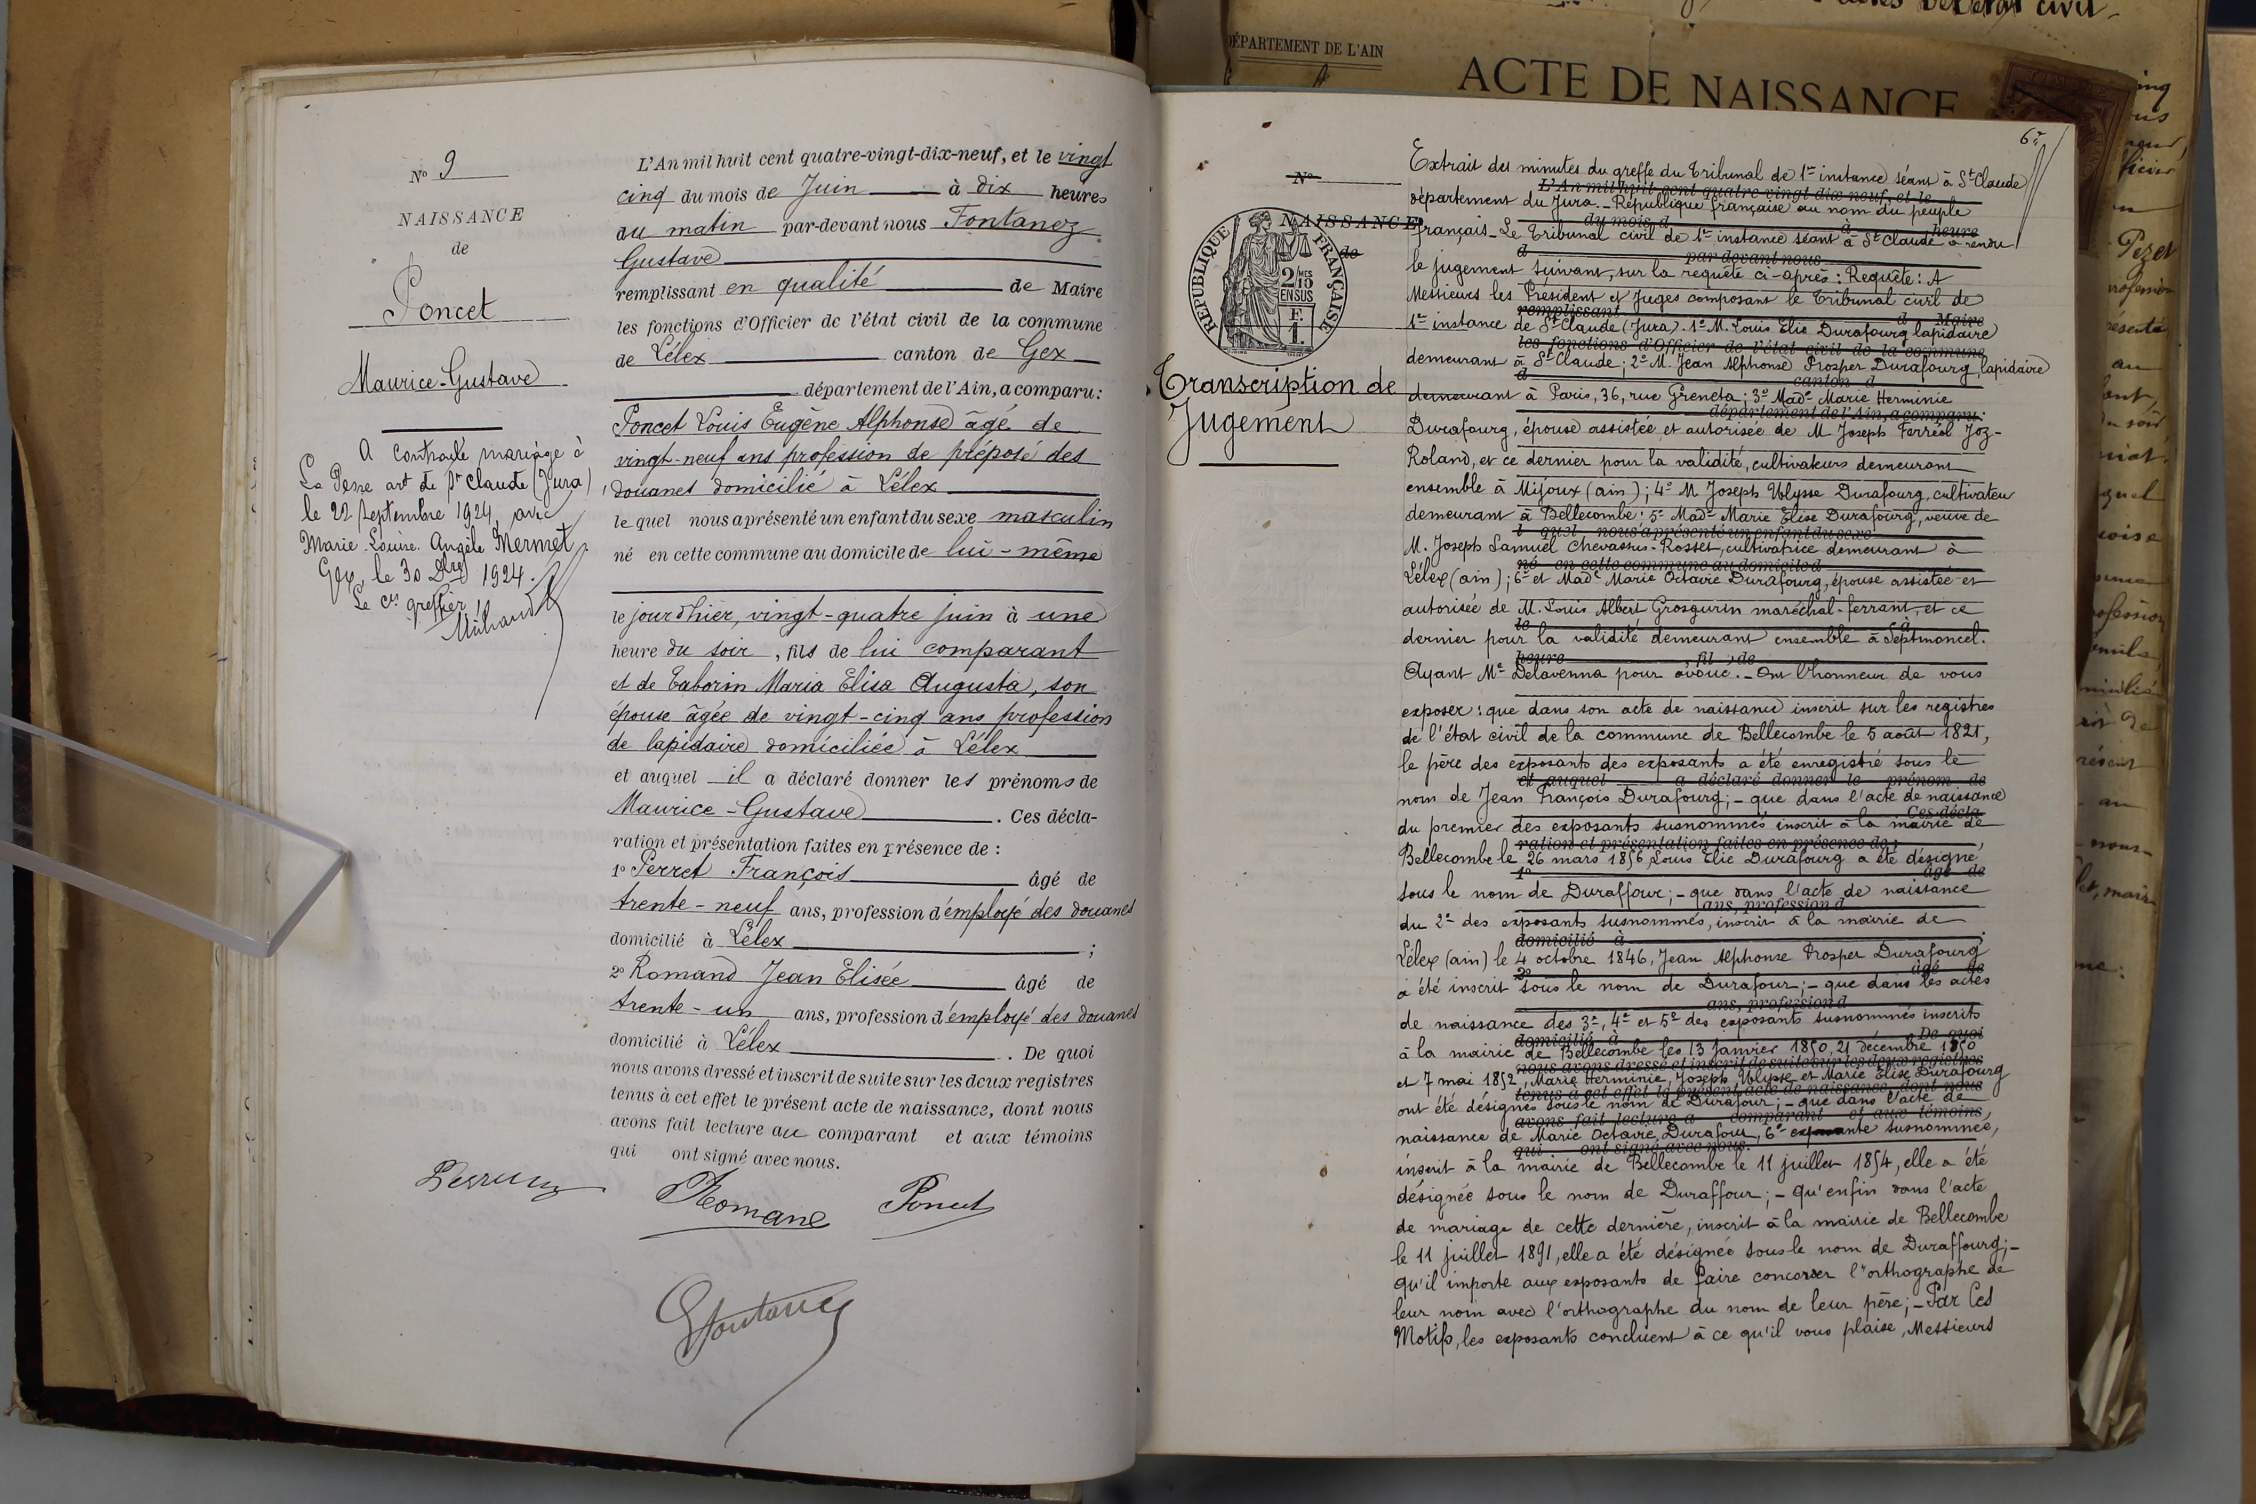 N° 9
NAISSANCE
de
Poncet
Maurice-Gustave
A contracté mariage à
La Pesse art de St Claude (Jura),
le 22 septembre 1924, avec
Marie-Louise-Angèle Mermet.
Gex, le 30 Dbre 1924.
Le cis greffier
L'An mil huit cent quatre-vingt-dix-neuf, et le vingt
cinq du mois de Juin à dix heures
du matin par-devant nous Fontanez
Gustave
remplissant en qualité de Maire
les fonctions d'Officier de l'état civil de la commune
de Lélex canton de Gex
département de l'Ain, a comparu:
Poncet Louis Eugène Alphonse âgé de
vingt-neuf ans profession de préposé des
douanes domicilié à Lélex
lequel nous a présenté un enfant du sexe masculin
né en cette commune au domicile de lui-même
le jour d'hier, vingt-quatre juin à une
heure du soir, fils de lui comparant
et de Taborin Maria Elisa Augusta, son
épouse âgée de vingt-cinq ans profession
de lapidaire domiciliée à Lélex
et auquel il a déclaré donner les prénoms de
Maurice-Gustave. Ces décla-
ration et présentation faites en présence de :
1° Perret François âgé de
trente-neuf ans, profession d'employé des douanes
domicilié à Lélex ;
2° Romand Jean Elisée âgé de
trente-un ans, profession d'employé des douanes
domicilié à Lélex. De quoi
nous avons dressé et inscrit de suite sur les deux registres
tenus à cet effet le présent acte de naissance, dont nous
avons fait lecture au comparant et aux témoins
qui ont signé avec nous.
Romand Poncet
GFontanez
DÉPARTEMENT DE L'AIN
ACTE DE NAISSANCE
N°
NAISSANCE
de
RÉPUBLIQUE FRANÇAISE
2/10 MES
EN SUS
F.
1.
Transcription de
Jugement
Extrait des minutes du greffe du Tribunal de 1re instance séant à St Claude
L'An mil huit cent quatre-vingt-dix-neuf, et le
département du Jura. - République française au nom du peuple
du mois d à heure
français - Le Tribunal civil de 1re instance séant à St Claude a rendu
d par devant nous
le jugement suivant, sur la requête ci-après : Requête : A
Messieurs les Président et Juges composant le Tribunal civil de
remplissant d Maire
1re instance de St Claude (Jura). 1° M. Louis Elie Durafourg lapidaire
les fonctions d'Officier de l'état civil de la commune
demeurant à St Claude ; 2° M. Jean Alphonse Prosper Durafourg, lapidaire
d canton d
demeurant à Paris, 36, rue Greneta ; 3° Made Marie Herminie
département de l'Ain, a comparu:
Durafourg, épouse assistée et autorisée de M Joseph Ferréol Joz-
Roland, et ce dernier pour la validité, cultivateurs demeurant
ensemble à Mijoux (ain) ; 4° M Joseph Ulysse Durafourg, cultivateur
demeurant à Bellecombe ; 5° Made Marie Elise Durafourg, veuve de
l quel nous a présenté un enfant du sexe
M. Joseph Samuel Chevassus-Rosset, cultivatrice demeurant à
né en cette commune au domicile d
Lélex (ain) ; 6° et Made Marie Octavie Durafourg, épouse assistée et
autorisée de M. Louis Albert Grosgurin maréchal-ferrant, et ce
le à
dernier pour la validité demeurant ensemble à Septmoncel.
heure , fil de
Ayant Me Delavenna pour avoué. - Ont l'honneur de vous
exposer : que dans son acte de naissance inscrit sur les registres
de l'état civil de la commune de Bellecombe le 5 août 1821,
le père des exposants des exposants a été enregistré sous le
et auquel a déclaré donner le prénom de
nom de Jean François Durafourg ; - que dans l'acte de naissance
Ces décla-
du premier des exposants susnommés inscrit à la mairie de
ration et présentation faites en présence de :
Bellecombe le 26 mars 1856, Louis Elie Durafourg a été désigné
1° âgé de
sous le nom de Duraffour ; - que dans l'acte de naissance
ans, profession d
du 2e des exposants susnommés, inscrit à la mairie de
domicilié à ;
Lélex (ain) le 4 octobre 1846, Jean Alphonse Prosper Durafourg
2° âgé de
a été inscrit sous le nom de Durafour ; - que dans les actes
ans, profession d
de naissance des 3e, 4e et 5e des exposants susnommés inscrits
domicilié à De quoi
à la mairie de Bellecombe les 13 janvier 1850, 21 décembre 1850
nous avons dressé et inscrit de suite sur les deux registres
et 7 mai 1852, Marie Herminie, Joseph Ulysse et Marie Elise Durafourg
tenus à cet effet le présent acte de naissance, dont nous
ont été désignés sous le nom de Durafour ; - que dans l'acte de
avons fait lecture a comparant et aux témoins
naissance de Marie Octavie Durafour, 6e exposante susnommée,
qui ont signé avec nous.
inscrit à la mairie de Bellecombe le 11 juillet 1854, elle a été
désignée sous le nom de Duraffour ; - qu'enfin dans l'acte
de mariage de cette dernière, inscrit à la mairie de Bellecombe
le 11 juillet 1891, elle a été désignée sous le nom de Duraffourg ; -
qu'il importe aux exposants de faire concorder l'orthographe de
leur nom avec l'orthographe du nom de leur père ; - Par Ces
Motifs, les exposants concluent à ce qu'il vous plaise, Messieurs